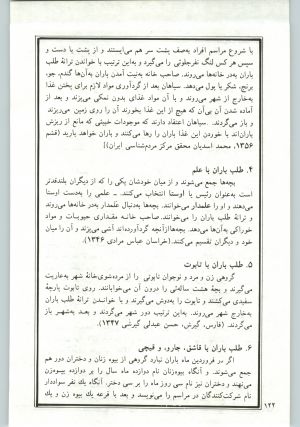 با شروع مراسم افراد به‌صف پشت سر هم می‌ایستند و از پشت یا دست و
سپس هر کس لنگ نفرجلوئی را می‌گیرد و به‌این ترتیب با خواندن ترانهٔ طلب
باران به‌در خانه‌ها می‌روند. صاحب خانه به‌نیت آمدن باران به‌آن‌ها گندم، جو،
برنج، شکر یا پول می‌دهد. بعد از گردآوری مواد لازم برای پختن غذا
به‌خارج از شهر می‌روند و با آن مواد غذای بدون نمکی می‌پزند و بعد از
آماده شدن آن بی‌آن که هیچ از این غذا بخورند آن را روی زمین می‌ریزند
و باز می‌گردند. سیاهان اعتقاد دارند که موجودات خبیثی که مانع از ریزش
باران‌اند با خوردن این غذا باران را رها می‌کنند و باران خواهد بارید (قشم
۱۳۵۶، محمد اسدیان محقق مرکز مردم‌شناسی ایران)]
۴. طلب باران با علم
بچه‌ها جمع می‌شوند و از میان خودشان یکی را که از دیگران بلندقدتر
است به‌عنوان رئیس یا اوستا انتخاب می‌کنند. - علمی را به‌دست اوستا
می‌دهند و او را علمدار می‌خوانند. بچه‌ها به‌دنبال علمدار به‌در خانه‌ها می‌روند
و ترانهٔ طلب باران را می‌خوانند. صاحب خانه مقداری حبوبات و مواد
خوراکی به‌آن‌ها می‌دهد. بچه‌ها ازآنچه گردآورده‌اند آشی می‌پزند و آن را میان
خود و دیگران تقسیم می‌کنند.(خراسان عباس مرادی ۱۳۴۶)
۵. طلب باران با تابوت
گروهی زن و مرد و نوجوان تابوتی را از مرده‌شوی‌خانهٔ شهر به‌عاریت
می‌گیرند و بچهٔ هشت ساله‌ئی را درون آن می‌خوابانند. روی تابوت پارچهٔ
سفیدی می‌کشند و تابوت را به‌دوش می‌گیرند و با خواندن ترانهٔ طلب باران
به‌خارج شهر می‌روند. به‌این ترتیب دور شهر می‌گردند و بعد به‌شهر باز
می‌گردند. (فارس، گیرش، حسن عبدلی گیرشی ۱۳۴۷).
۶. طلب باران با قاشق، جارو، و قیچی
اگر در فروردین ماه باران نبارد گروهی از بیوه زنان و دختران دور هم
جمع می‌شوند. و آنگاه بیوه‌زنان نام دوازده ماه سال را بر دوازده بیوه‌زن
می‌نهند و دختران نیز نام سی روز ماه را بر سی دختر. آنگاه یک نفر سواددار
نام شرکت‌کنندگان در مراسم را می‌نویسد و بعد با قرعه یک بیوه زن و یک
۱۲۲